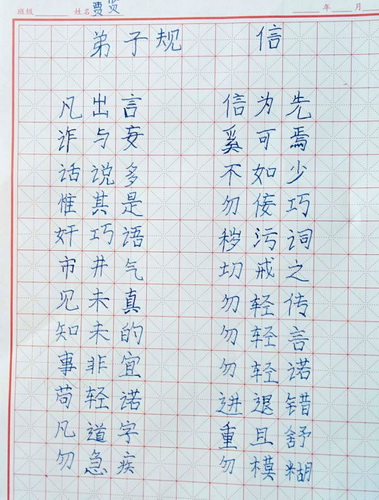 班级 姓名 年 月
弟子规 信
凡出言 信为先
诈与妄 奚可焉
话说多 不如少
惟其是 勿佞巧
奸巧语 秽污词
市井气 切戒之
见未真 勿轻传
知未的 勿轻言
事非宜 勿轻诺
苟轻诺 进退错
凡道字 重且舒
勿急疾 勿模糊